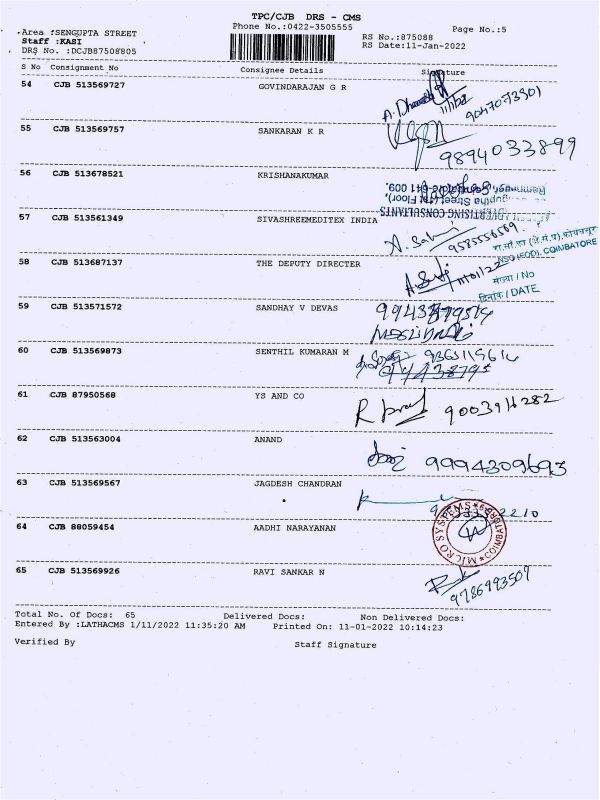 TPC/CJB DRS - CMS
Phone No.:0422-3505555
Page No.:5
Area :SENGUPTA STREET
Staff :KASI
DRS No. :DCJB87508805
RS No.:875088
RS Date:11-Jan-2022
S No Consignment No Consignee Details Signature
54 CJB 513569727 GOVINDARAJAN G R
9047073901
55 CJB 513569757 SANKARAN K R
9894033899
56 CJB 513678521 KRISHANAKUMAR
57 CJB 513561349 SIVASHREEMEDITEX INDIA
ADVERTISING CONSULTANTS
9585556569
COIMBATORE
58 CJB 513687137 THE DEPUTY DIRECTER
संख्या / No
दिनांक / DATE
59 CJB 513571572 SANDHAY V DEVAS
60 CJB 513569873 SENTHIL KUMARAN M
61 CJB 87950568 YS AND CO
9003916282
62 CJB 513563004 ANAND
9994309693
63 CJB 513569567 JAGDESH CHANDRAN
64 CJB 88059454 AADHI NARAYANAN
MICRO SYSTEMS COIMBATORE
65 CJB 513569926 RAVI SANKAR N
9786993507
Total No. Of Docs: 65 Delivered Docs: Non Delivered Docs:
Entered By :LATHACMS 1/11/2022 11:35:20 AM Printed On: 11-01-2022 10:14:23
Verified By Staff Signature